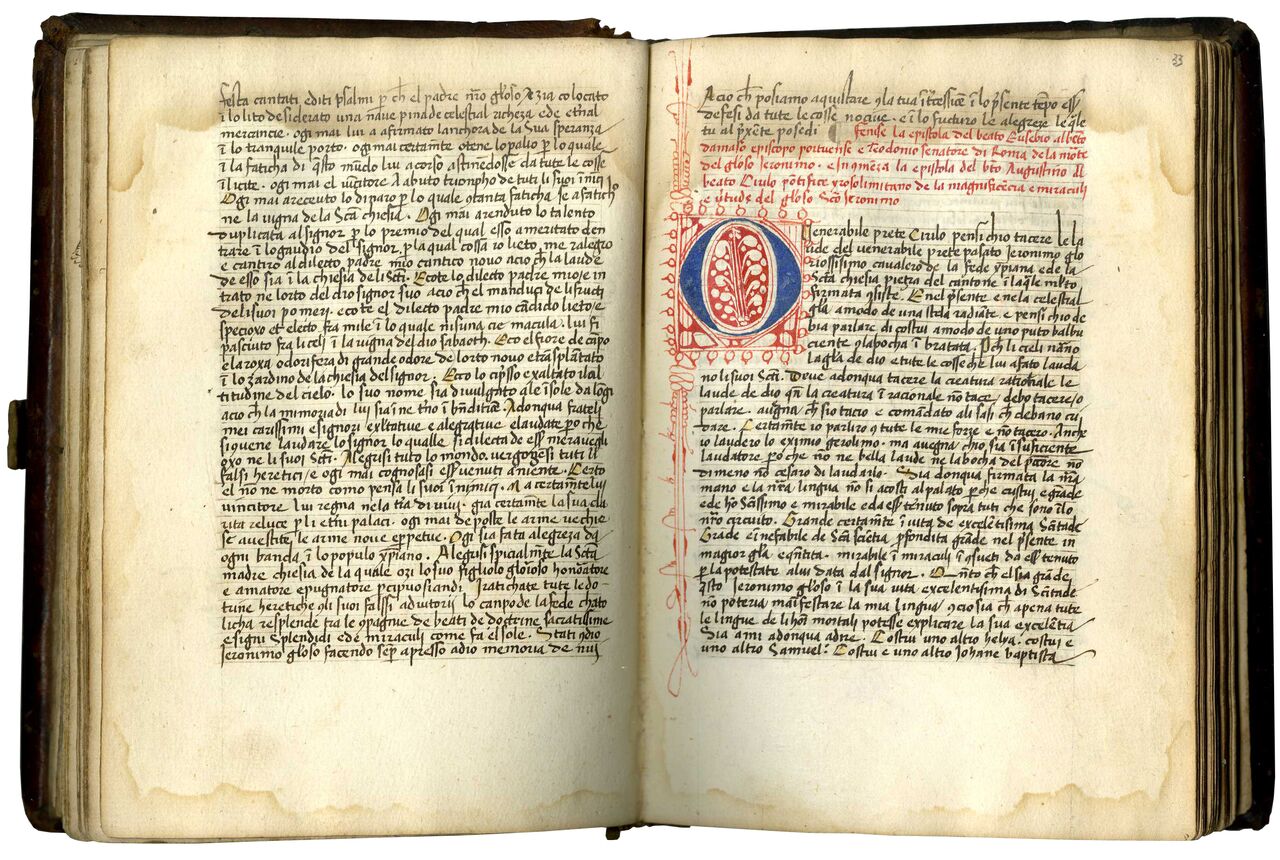 festa cantati editi psalmi p ch el padre nr̄o glōso Azia colocato
ī lo lito desiderato una nave pina de celestial richeza ede etnal
mercancie · ogi mai lui a afirmato lanchora de la sua speranza
ī lo tranquile porto · ogi mai certamente otene lo palio p lo quale
ī la faticha di q̄sto mūdo lui a corso astinedosse da tute le cosse
ilicite · ogi mai el vīcitore A abuto triompho de tuti li suoi inimici
Ogi mai a recevuto lo diparo p lo quale
ne la vigna de la Scā chiesia · Ogi mai a renduto lo talento
duplicato al signor p lo premio del qual esso a meritato den
trare ī lo gaudio del signor p la qual cossa io lieto me ralegro
e cantiro al dilecto padre mio cantico novo acio ch la laude
de esso sia ī la chiesia de li Scti · Ecote lo dilecto padre mio e in
trato ne lorto del dio signor suo acio ch el manduci de li fructi
de li suoi pomeri · ecote el dilecto padre mio cādido lieto e
specioxo et electo fra mile ī lo quale nisuna cie macula ī lui fi
pasciuto fra li celi ī la vigna del dio sabaoth · Eco el fiore de cāpo
e la roxa odorifera di grande odore de lorto novo e trasplātato
ī lo zardino de la chiesia del signor · Ecco lo cip̄sso exaltato ī la al
titudine del cielo · lo suo nome sia divulgato ale īsole da lōgi
acio ch la mimoria di lui sia ī etno ī bn̄ditiōe · Adonqua frateli
mei carissimi e signori exltative e alegrative e laudate po che
si q vene laudare lo signor lo qualle si dilecta de ess meravegli
oxo ne li suoi Scti · Alegrisi tuto lo mondo vergogēsi tuti li
falsi heretici e ogi mai cognosasi ess venuti a niente · Certo
el nō ne morto como pensa li suoi inimici · Ma certamēte lui
vincitore lui regna ne la trā di vivi · gia certamēte la sua cla
rita reluce p li etni palaci · ogi mai de poste le arme vechie
se a vestite le arme nove e ppetue · Ogi sia fata alegreza da
ogni banda ī lo populo xpiano · Alegrisi spicialmēte la Scta
madre chiesia de la quale ozi lo suo figliolo glorioso honoratore
e amatore e pugnatore Iratichate tute le do
trine heretiche q li suoi falssi adiutorii lo canpo de la fede chato
licha resplende fra le q̄pagnie de beati de doctrine sacratissime
e signi splendidi e de miraculi come fa el sole · Stati q dio
Jeronimo glōso facendo semp apresso a dio memoria de nui
33
Acio ch posiamo aquistare q la tua īt̄cessiōe ī lo p̄sente tēpo ess
defesi da tute le cosse nocive · e ī lo futuro le alegreze le q̄le
tu al p̄xēte posedi Fenise la epistola del beato Eusebio al beto
damaso episcopo portuense e Teodonio senatore di Roma de la mōte
del glōso Jeronimo · e in qmēza la epistola del bto Augustino al
beato Cirulo pontifice yrosolimitano de la magnificēcia e miraculi
e vtuds del glōso Scō Jeronimo
O venerabile prete Cirulo pensi ch io tacere le la
ude del venerabile prete pasato Jeronimo glo
riossissimo cavalero de la fede xpiana e de la
Scta chiesia pietra del cantone ī la q̄le mlto
firmata q̄siste · E nel p̄sente e ne la celestial
glā amodo de una stela radiate · e pensi ch io de
bia parlare di costui amodo de uno puto balbu
ciente q la bocha ībratata · Pch li cieli nāno
la glā de dio e tute le cosse ch lui a fato lauda
no li suoi Scti · Deve adonqua tacere la creatura rationale le
laude de dio qn̄ la creatura ī racionale nō tace / debo tacere / o
parlare · avegna ch s io tacio e comādato ali sasi ch debano cri
dare · Certamēte io parlaro q tute le mie forze e nō tacero · Anche
io laudero lo eximio gerolimo · ma avegna ch io sia īsuficiente
laudatore po che nō ne bella laude ne la bocha del pcatore no
di meno nō cesaro di laudarlo · Sia donqua firmata la nr̄a
mano e la nr̄a lingua nō si acosti al palato pche custui e grāde
e de ho Scissimo e mirabile e da ess temuto sopra tuti che sono ī lo
nr̄o circuito · Grande certamēte ī vita de excelētissima Sctitade
Grāde e inefabile de Scā scietia pfondita grāde nel p̄sente in
magior glā e q̄ntita · mirabile ī miraculi ī q̄sveti da ess tenuto
p la potestate a lui data dal signor · Q nto ch el sia grāde
q̄sto Jeronimo glōso ī la sua vita excelentissima di Sctitade
nō poteria maīfestare la mia lingua · q cio sia ch apena tute
le lingue de li homī mortali potesse explicare la sua excelētia
Sia ami adonqua Costui uno altro helya · costui e
uno altro Samuel · Costui e uno altro Johane baptista